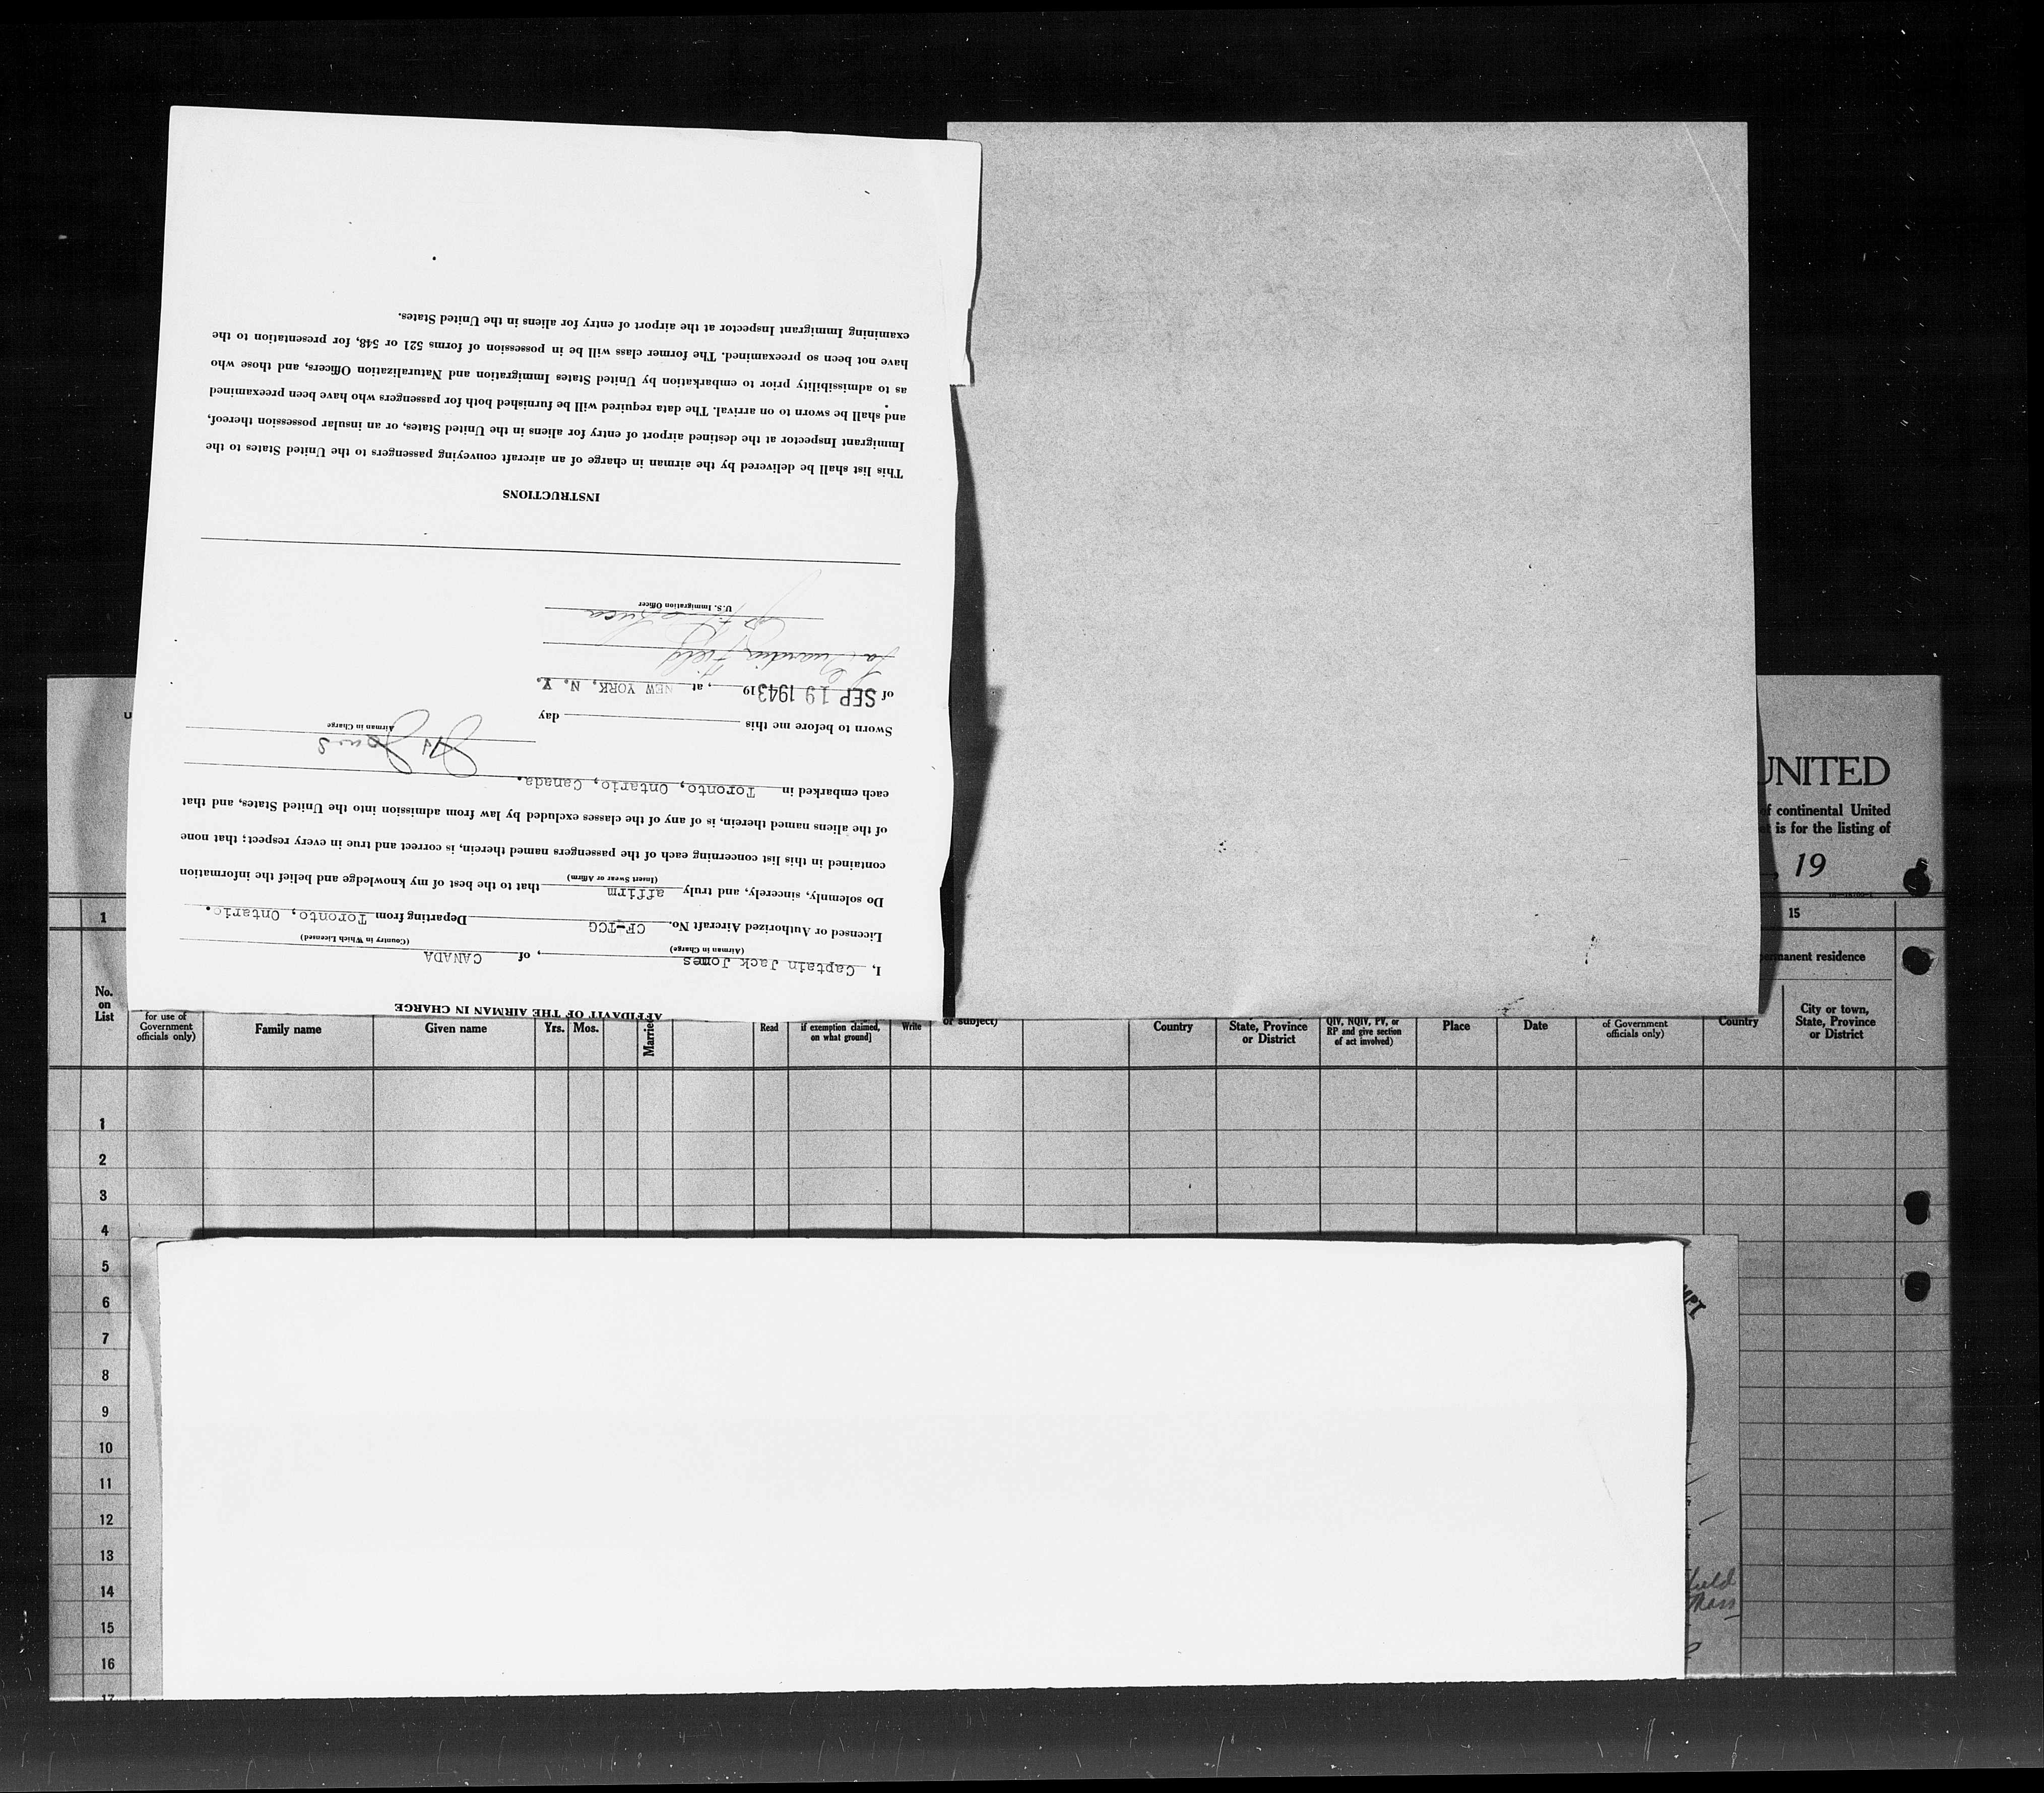 AFFIDAVIT OF THE AIRMAN IN CHARGE
I, Captain Jack Jones, of CANADA
(Airman in Charge) (Country in Which Licensed)
Licensed or Authorized Aircraft No. CF-TCG Departing from Toronto, Ontario.
Do solemnly, sincerely, and truly affirm that to the best of my knowledge and belief the information
(Insert Swear or Affirm)
contained in this list concerning each of the passengers named therein, is correct and true in every respect; that none
of the aliens named therein, is of any of the classes excluded by law from admission into the United States, and that
each embarked in Toronto, Ontario, Canada.
Jones
Airman in Charge
Sworn to before me this day
of SEP 19 1943 19 , at NEW YORK, N. Y.
La Guardia Field
U.S. Immigration Officer
INSTRUCTIONS
This list shall be delivered by the airman in charge of an aircraft conveying passengers to the United States to the
Immigrant Inspector at the destined airport of entry for aliens in the United States, or an insular possession thereof,
and shall be sworn to on arrival. The data required will be furnished both for passengers who have been preexamined
as to admissibility prior to embarkation by United States Immigration and Naturalization Officers, and those who
have not been so preexamined. The former class will be in possession of forms 521 or 548, for presentation to the
examining Immigrant Inspector at the airport of entry for aliens in the United States.
UNITED
of continental United
is for the listing of
, 19
1 15
permanent residence
No.
on
List
for use of
Government
officials only)
Family name Given name Yrs. Mos. Married Read
if exemption claimed,
on what ground]
Write
or subject)
Country
State, Province
or District
QIV, NQIV, PV, or
RP and give section
of act involved)
Place Date
of Government
officials only)
Country
City or town,
State, Province
or District
1
2
3
4
5
6
7
8
9
10
11
12
13
14
field
Mass
15
16
17